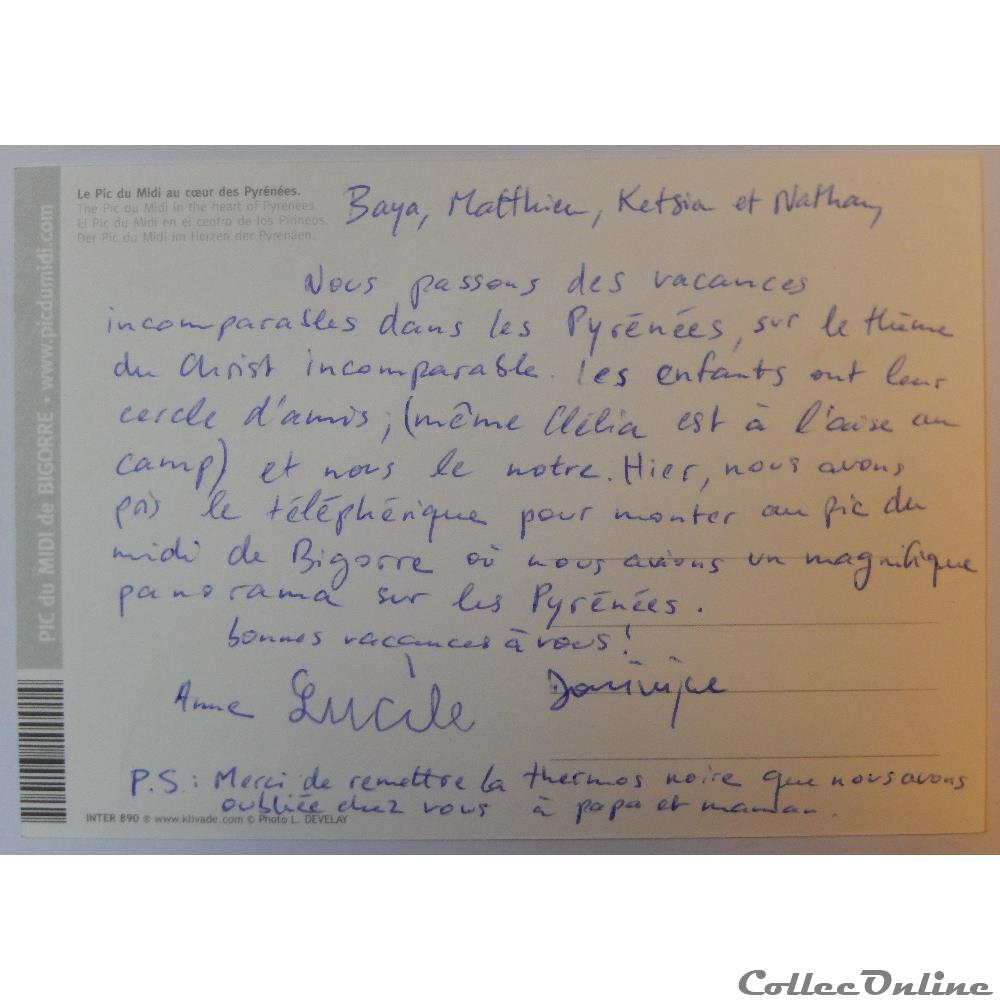 Le Pic du Midi au cœur des Pyrénées.
The Pic du Midi in the heart of Pyrenees.
El Pic du Midi en el centro de los Pirineos.
Der Pic du Midi im Herzen der Pyrenäen.
PIC du MIDI de BIGORRE • www.picdumidi.com
Baya, Matthieu, Ketsia et Nathan,
Nous passons des vacances
incomparables dans les Pyrénées, sur le thème
du Christ incomparable. Les enfants ont leur
cercle d'amis; (même Clélia est à l'aise au
camp) et nous le notre. Hier, nous avons
pris le téléphérique pour monter au pic du
midi de Bigorre où nous avions un magnifique
panorama sur les Pyrénées.
bonnes vacances à vous!
Anne Lucile Dominique
P.S: Merci de remettre la thermos noire que nous avons
oubliée chez vous à papa et maman.
INTER 890 ® www.klivade.com © Photo L. DEVELAY
CollecOnline